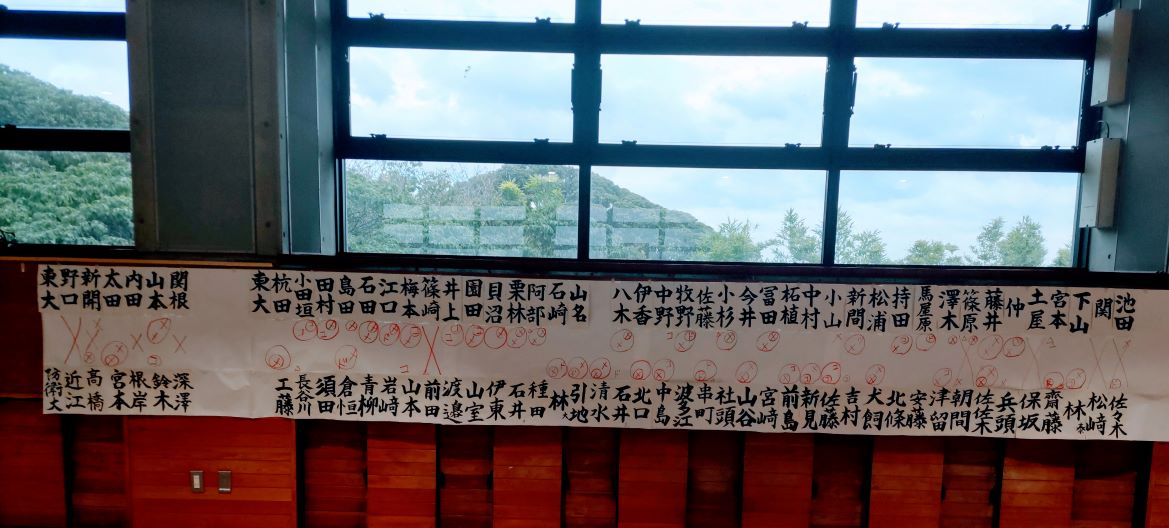 池田
関
下山
宮本
土屋
仲
藤井
篠原
澤木
馬屋原
持田
松浦
新間
小山
中村
柘植
冨田
今井
小杉
佐藤
牧野
中野
伊香
八木
山名
石崎
阿部
栗林
貝沼
園田
井上
篠崎
梅本
江口
石田
島田
田村
小田垣
杭田
東大
関根
山本
内田
太田
新開
野口
東大
佐々木
松崎
林
齋藤
保坂
兵頭
佐佐木
朝間
津留
安藤
北條
犬飼
吉村
佐藤
新見
前島
宮崎
山谷
社頭
串町
波多江
中島
北口
石井
清水
引地
林
種田
石井
伊東
山室
渡邉
前田
山本
岩崎
青柳
倉恒
須田
長谷川
工藤
深澤
鈴木
根岸
宮本
高橋
近江
防衛大